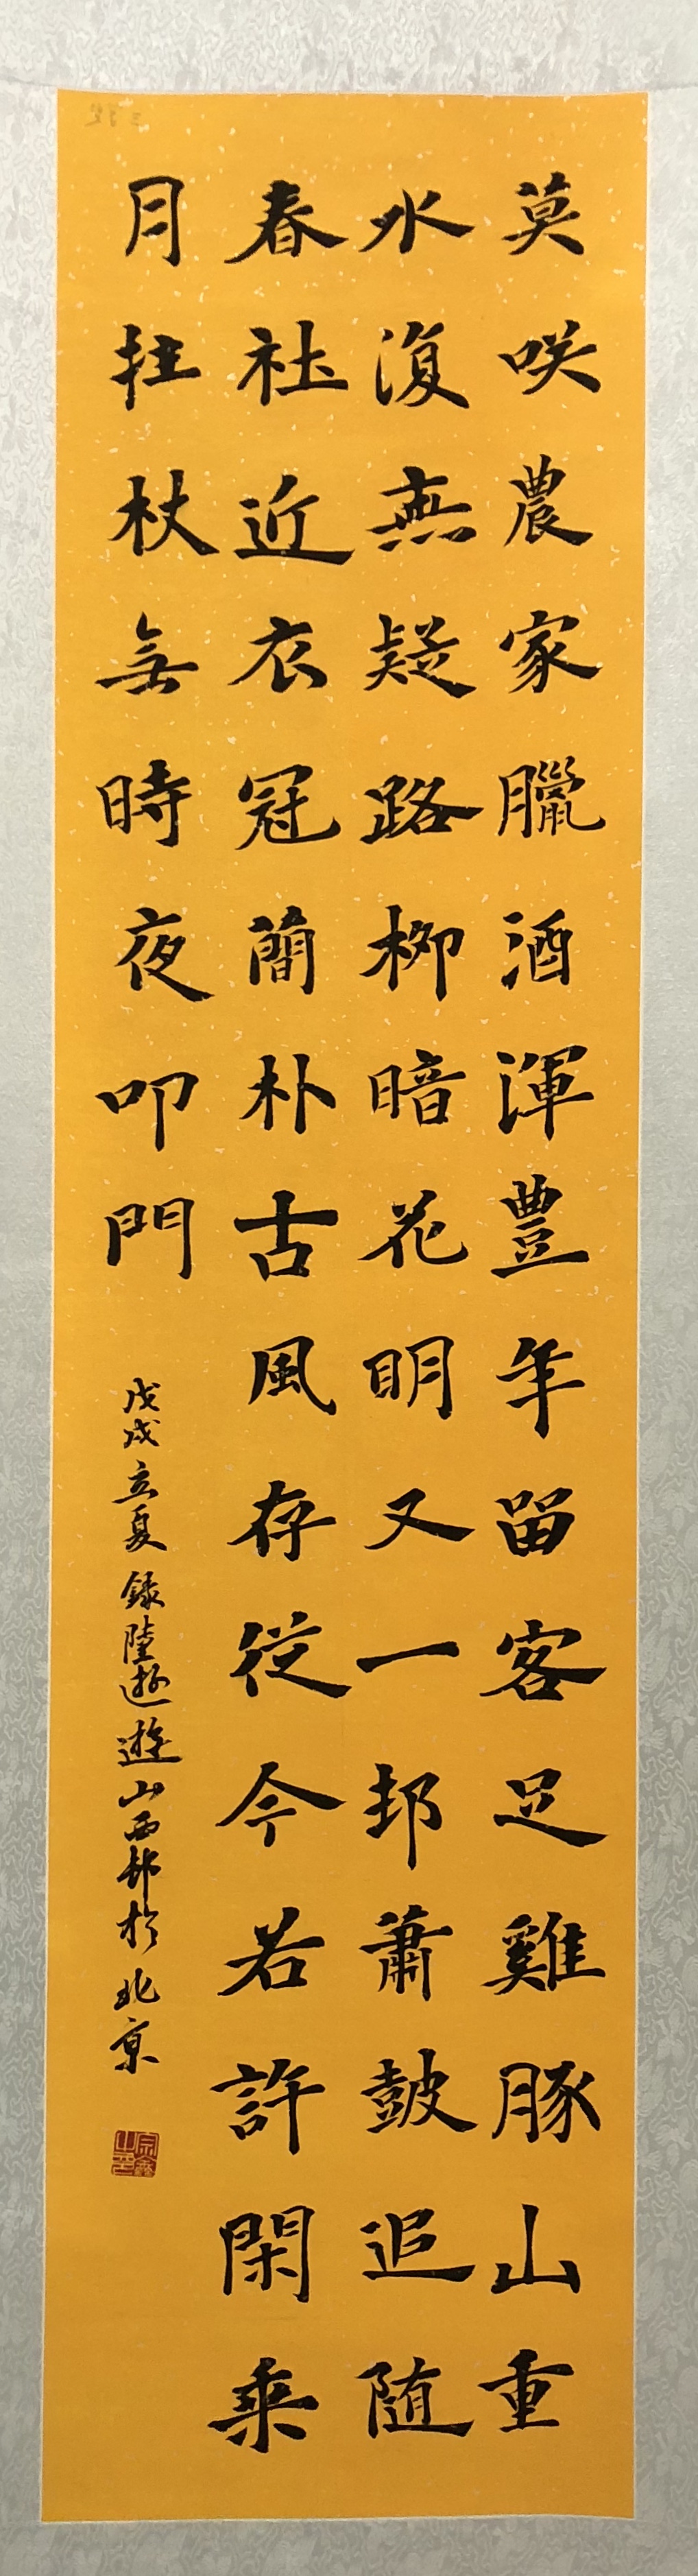 莫咲農家臘酒渾豐年留客足雞豚山重
水復無疑路柳暗花明又一邨蕭鼓追随
春社近衣冠簡朴古風存從今若許閑乗
月拄杖無時夜叩門
戊戌立夏錄陸遊遊山西邨於北京